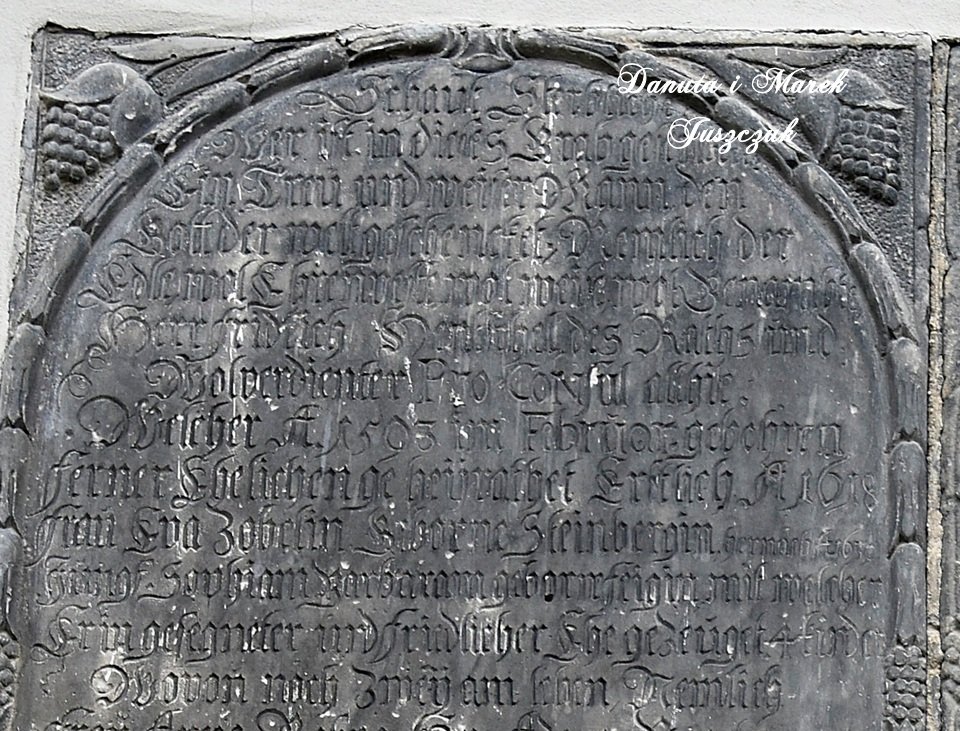 Danuta i Marek
Juszczak
Schaut Sterbliche
Wer ist in dieses Grab gesencket
Ein Treu und weiser Mann den
Gott der welt geschencket, Nemlich der
Edle, wol Ehrnveste wolweise
Herr Fridrich des Raths und
Wolverdienter Pro Consul allhie:
Welcher A. 1593 im Februar: gebohren
ferner Ehelichen geheürathet Erstlich A. 1618
frau Eva Zobelin, Geborne Steinbergin,
Jungf. Sophiam Barbaram mit welcher
Er in gesegneter und fridlicher Ehe gezeuget 4 kinder
Wovon noch Zweÿ am leben, Nemlich
frau Anna